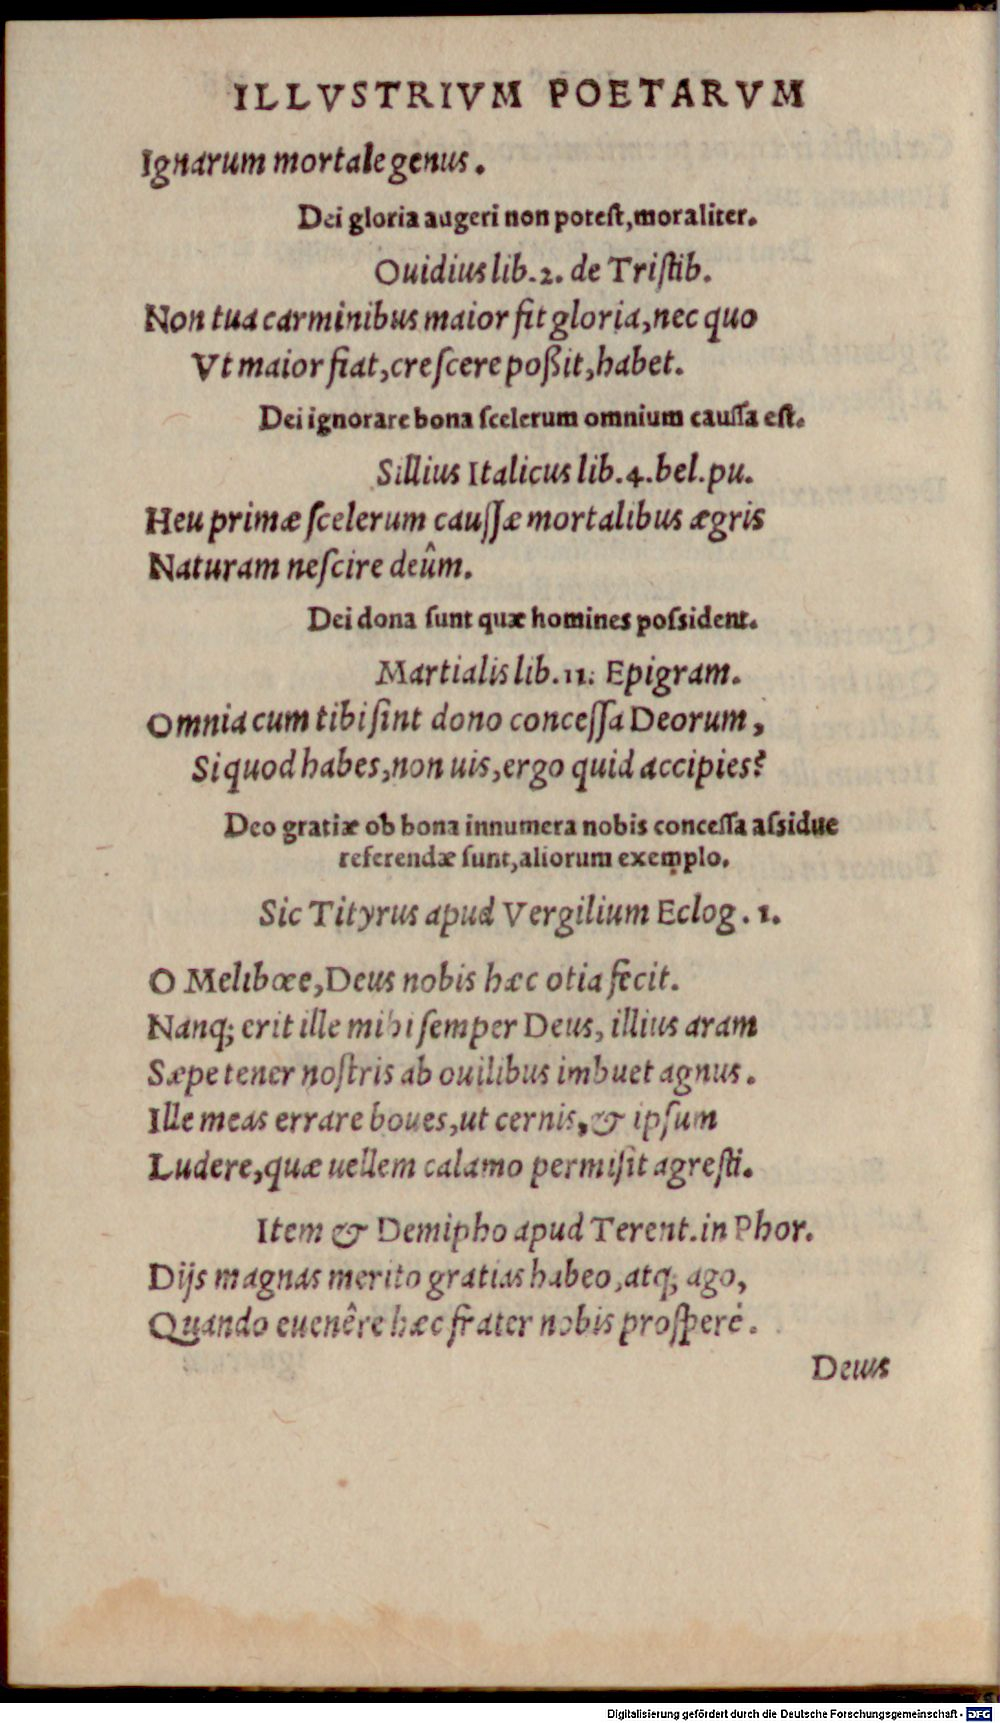 ILLVSTRIVM POETARVM
Ignarum mortale genus.
Dei gloria augeri non potest, moraliter.
Ouidius lib. 2. de Tristib.
Non tua carminibus maior fit gloria, nec quo
Vt maior fiat, crescere poßit, habet.
Dei ignorare bona scelerum omnium caussa est.
Sillius Italicus lib. 4. bel. pu.
Heu primæ scelerum caussæ mortalibus ægris
Naturam nescire deûm.
Dei dona sunt quæ homines possident.
Martialis lib. 11. Epigram.
Omnia cum tibi sint dono concessa Deorum,
Si quod habes, non uis, ergo quid accipies?
Deo gratiæ ob bona innumera nobis concessa assidue
referendæ sunt, aliorum exemplo.
Sic Tityrus apud Vergilium Eclog. 1.
O Melibœe, Deus nobis hæc otia fecit.
Nanq; erit ille mihi semper Deus, illius aram
Sæpe tener nostris ab ouilibus imbuet agnus.
Ille meas errare boues, ut cernis, & ipsum
Ludere, quæ uellem calamo permisit agresti.
Item & Demipho apud Terent. in Phor.
Dijs magnas merito gratias habeo, atq; ago,
Quando euenêre hæc frater nobis prosperè.
Deus
Digitalisierung gefördert durch die Deutsche Forschungsgemeinschaft - DFG